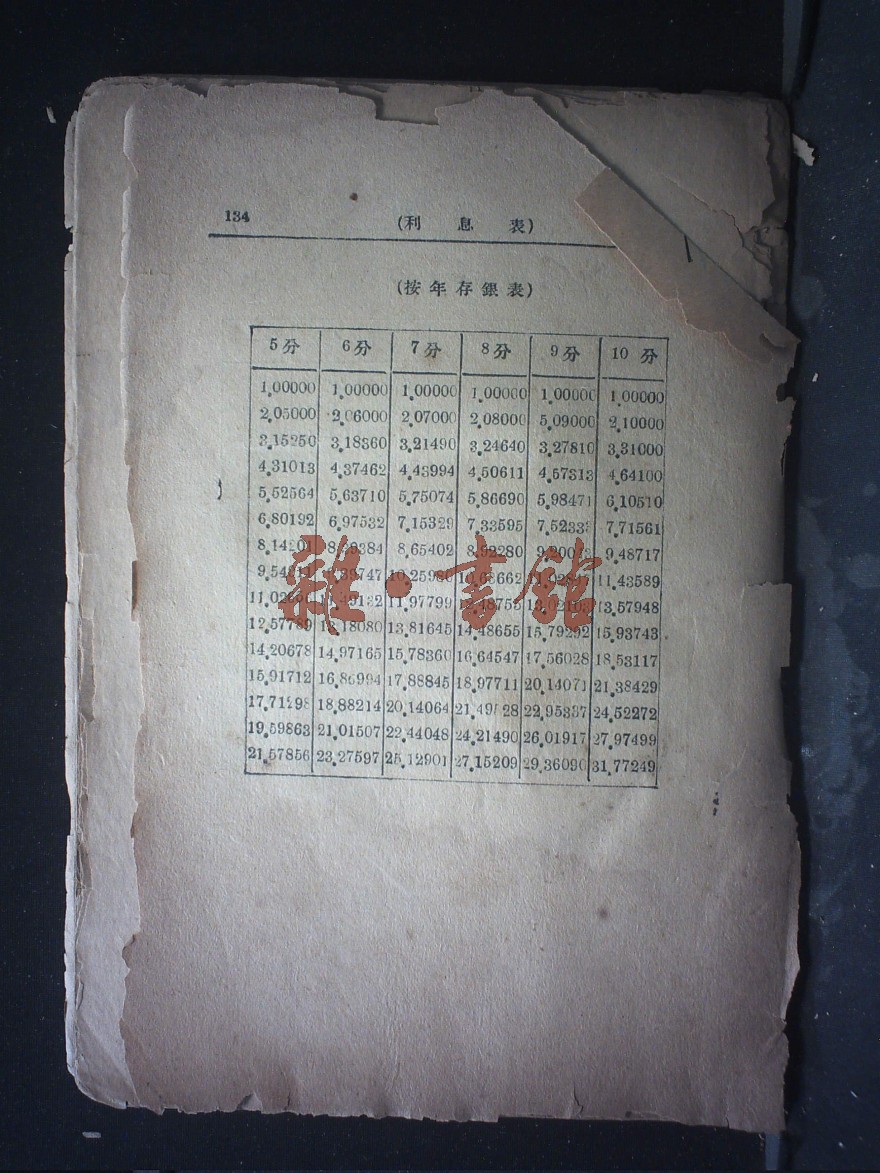 134
(利息表)
(按年存銀表)
5分 6分 7分 8分 9分 10分
1.00000 1.00000 1.00000 1.00000 1.00000 1.00000
2.05000 2.06000 2.07000 2.08000 5.09000 2.10000
3.15250 3.18360 3.21490 3.24640 3.27810 3.31000
4.31013 4.37462 4.43994 4.50611 4.57313 4.64100
5.52564 5.63710 5.75074 5.86690 5.98471 6.10510
6.80192 6.97532 7.15329 7.33595 7.52333 7.71561
8.14201 8.39384 8.65402 8.92280 9.48717
10.25980 10.63662 11.43589
11.97799 13.57948
12.57789 13.18080 13.81645 14.48655 15.79292 15.93743
14.20678 14.97165 15.78360 16.64547 17.56028 18.53117
15.91712 16.86994 17.88845 18.97711 20.14071 21.38429
17.71298 18.88214 20.14064 22.95337 24.52272
19.59863 21.01507 22.44048 24.21490 26.01917 27.97499
21.57856 23.27597 25.12901 27.15209 29.36090 31.77249
雜·書館